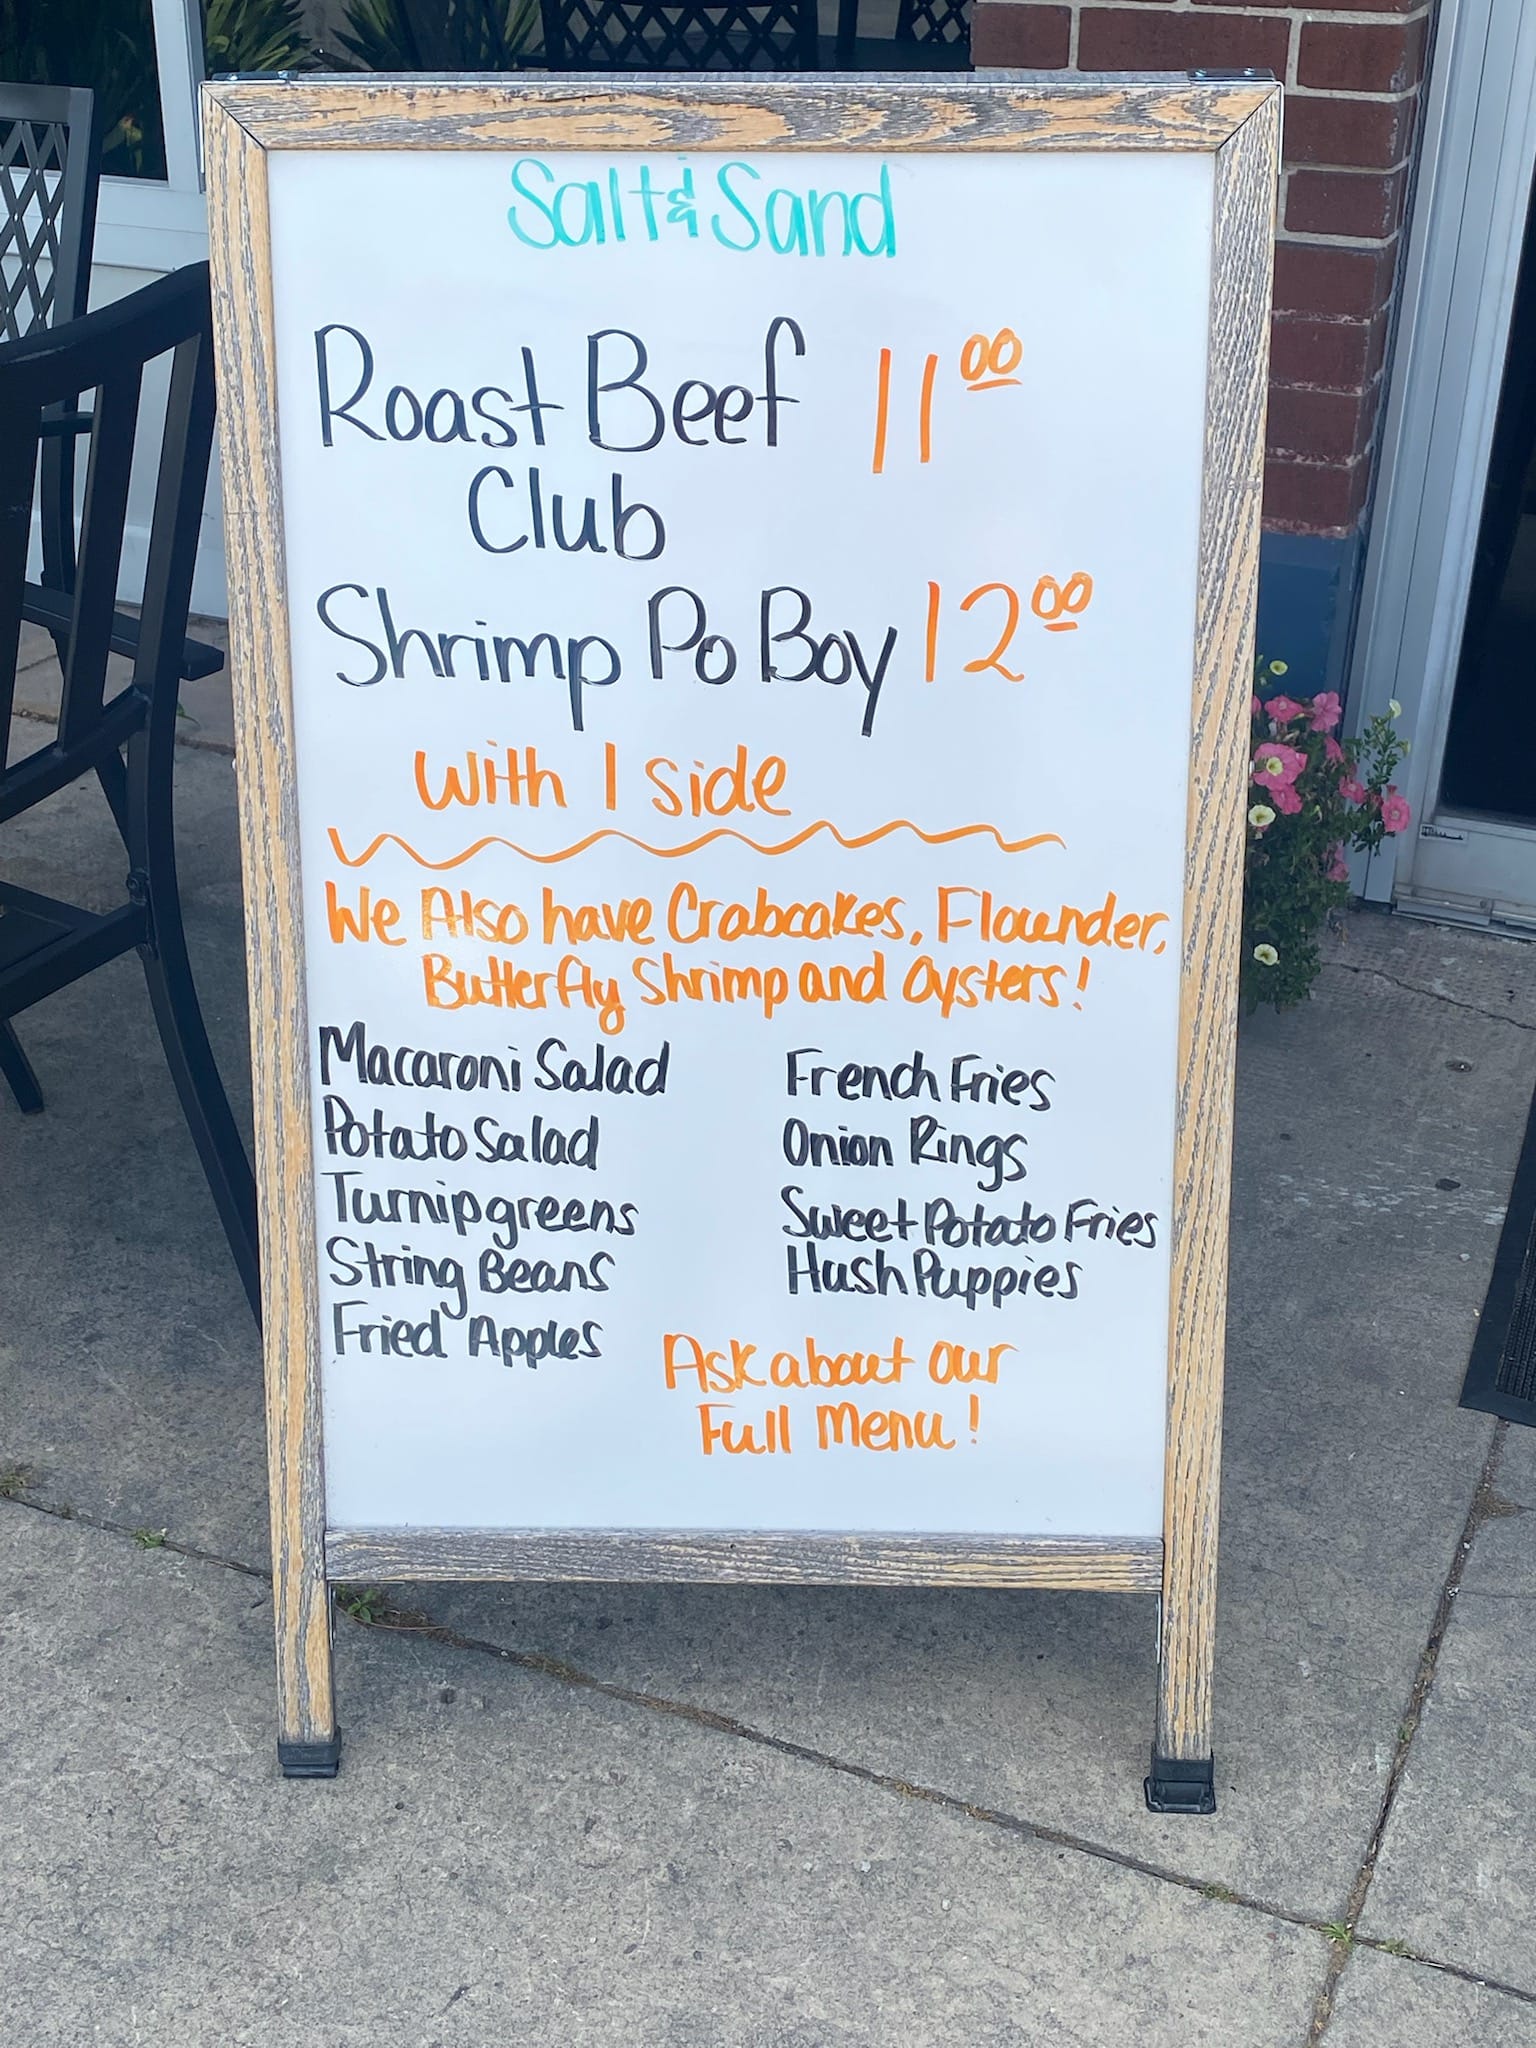 Salt & Sand
Roast Beef 11 00
Club
Shrimp Po Boy 12 00
With 1 side
We Also have Crabcakes, Flounder,
Butterfly Shrimp and Oysters!
Macaroni Salad
Potato Salad
Turnip greens
String Beans
Fried Apples
French Fries
Onion Rings
Sweet Potato Fries
Hush Puppies
Ask about our
Full Menu!